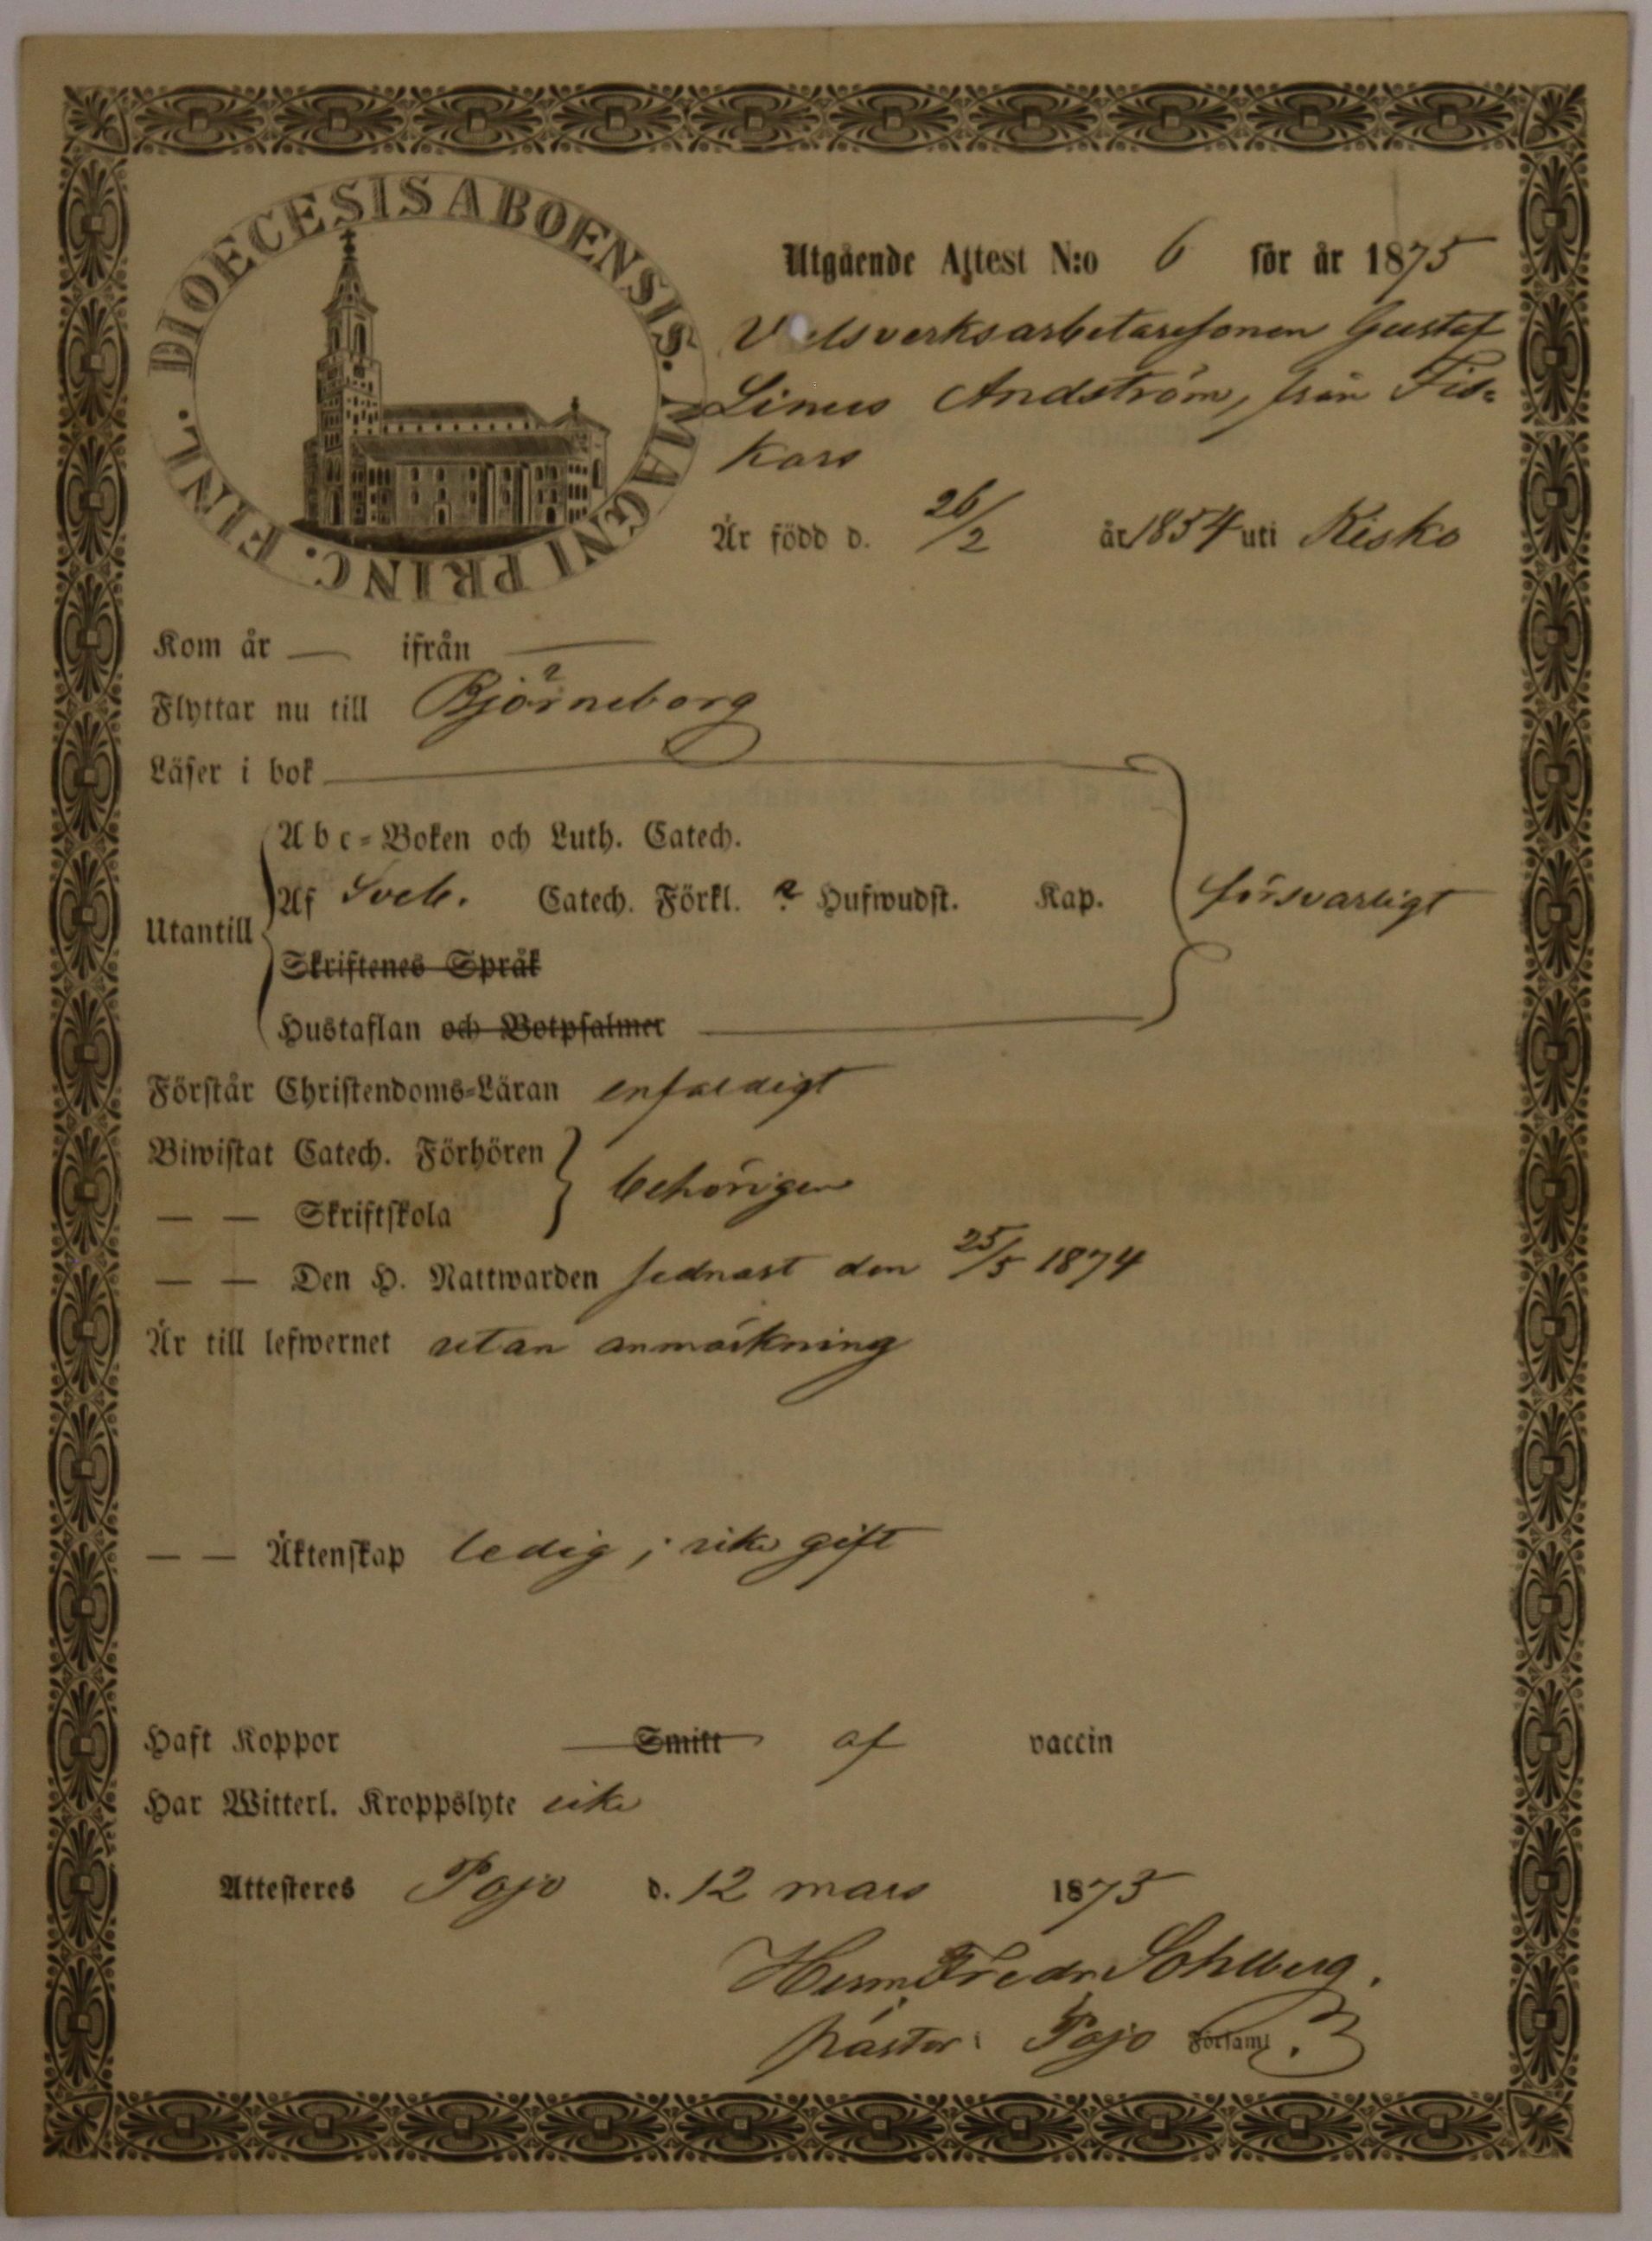 DIOECESIS ABOENSIS. MAGNI PRINC. FINL.
Utgående Attest N:o 6 för år 1875
Valsverksarbetaresonen Gustaf
Linus Andström, från Fis-
kars
Är född d. 26/2 år 1854 uti Kisko
Kom år — ifrån —
Flyttar nu till Björneborg
Läser i bok
Abc-Boken och Luth. Catech.
Utantill
Af Sveb. Catech. Förkl. Hufwudst. Kap.
försvarligt
Skriftenes Språk
Hustaflan och Botpsalmer
Förstår Christendoms-Läran enfaldigt
Biwistat Catech. Förhören
— — Skriftskola
behörigen
— — Den H. Nattwarden sednast den 25/5 1874
Är till lefwernet utan anmärkning
— — Äktenskap ledig; icke gift
Haft Koppor Smitt af vaccin
Har Witterl. Kroppslyte icke
Attesteras Pojo d. 12 mars 1875
Herm Fredr Sohlberg.
pastor i Pojo Församl.